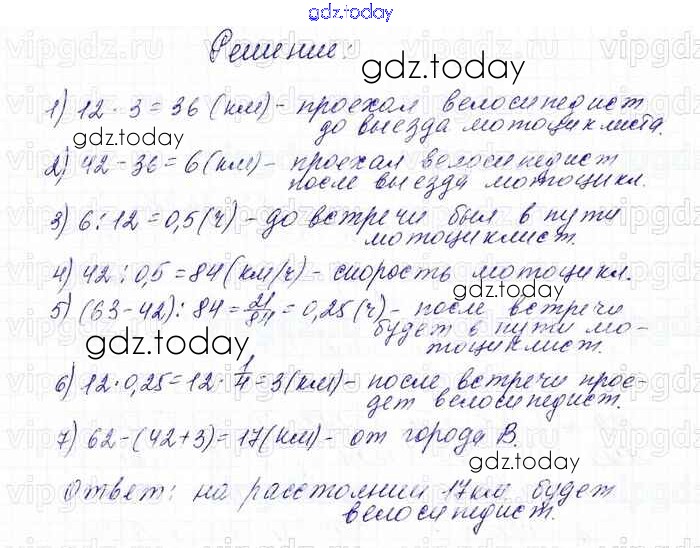 gdz.today
Решение:
gdz.today
1) 12 · 3 = 36 (км) - проехал велосипедист
до выезда мотоциклиста.
gdz.today
2) 42 - 36 = 6 (км) - проехал велосипедист
после выезда мотоцикл.
3) 6 : 12 = 0,5 (ч) - до встречи был в пути
мотоциклист.
4) 42 : 0,5 = 84 (км/ч) - скорость мотоцикл.
5) (63 - 42) : 84 = 21/84 = 0,25 (ч) - после встречи
будет в пути мо-
тоциклист.
gdz.today
6) 12 · 0,25 = 12 · 1/4 = 3 (км) - после встречи прое-
дет велосипедист.
7) 62 - (42 + 3) = 17 (км) - от города В.
gdz.today
Ответ: на расстоянии 17 км будет
велосипедист.